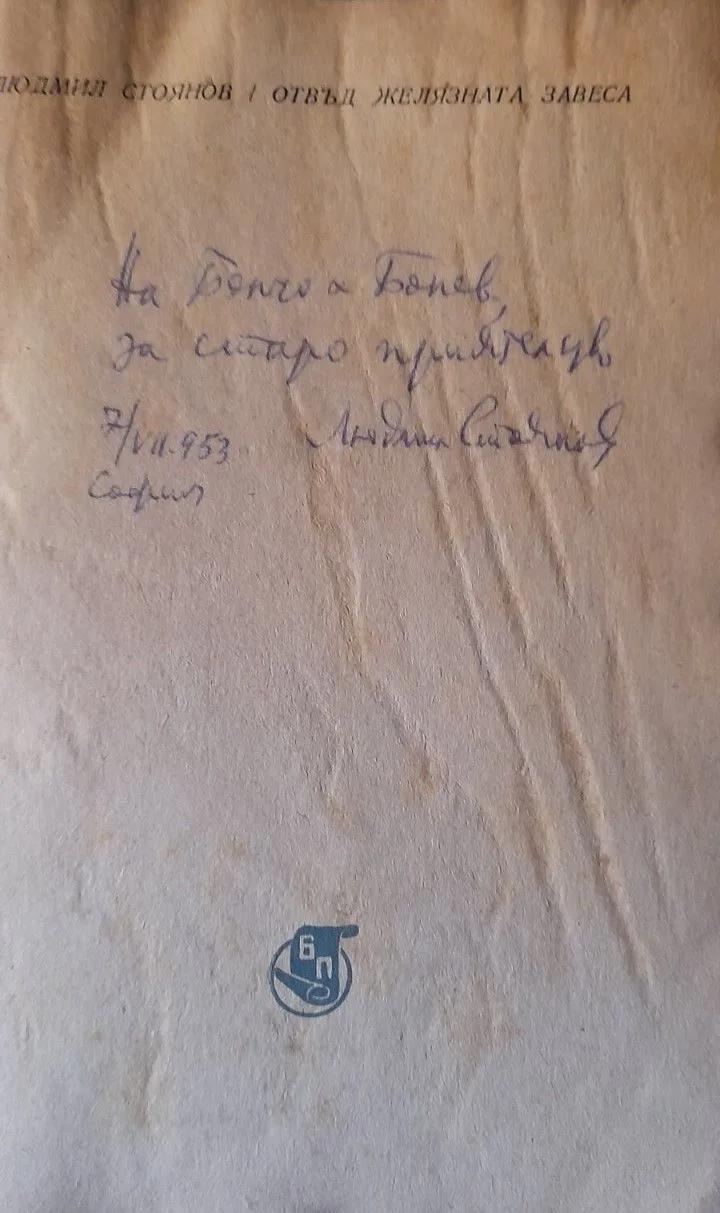 ЛЮДМИЛ СТОЯНОВ / ОТВЪД ЖЕЛЯЗНАТА ЗАВЕСА
На Бончо Бонев,
за старо приятелство
7/VII.953 Людмил Стоянов
София
БП